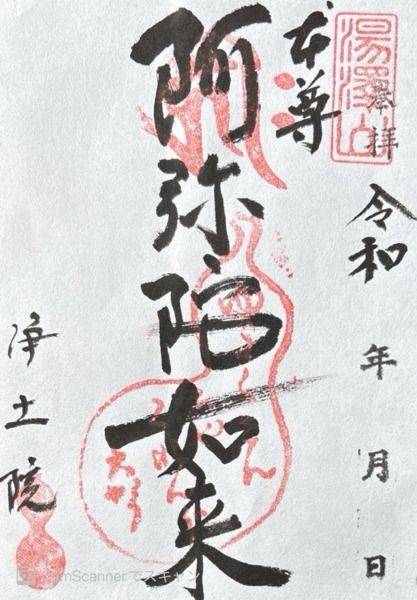 奉拝
湯澤山
令和 年 月 日
本尊
阿弥陀如来
浄土院
CamScannerでスキャン